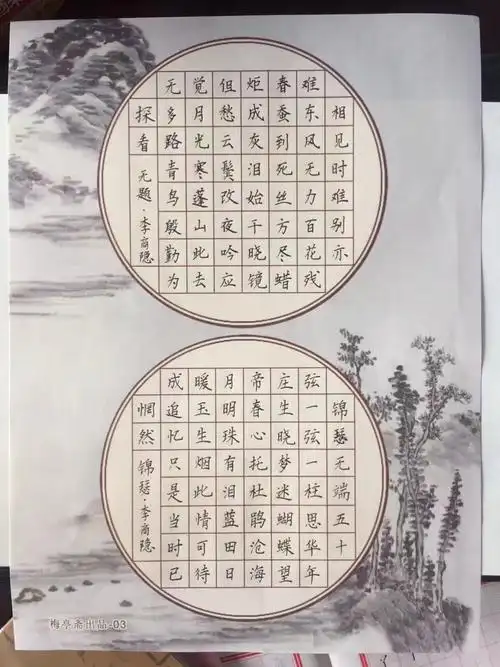 相见时难别亦
难东风无力百花残
春蚕到死丝方尽蜡
炬成灰泪始干晓镜
但愁云鬓改夜吟应
觉月光寒蓬山此去
无多路青鸟殷勤为
探看
无题·李商隐
锦瑟无端五十
弦一弦一柱思华年
庄生晓梦迷蝴蝶望
帝春心托杜鹃沧海
月明珠有泪蓝田日
暖玉生烟此情可待
成追忆只是当时已
惘然
锦瑟·李商隐
梅亭斋出品-03